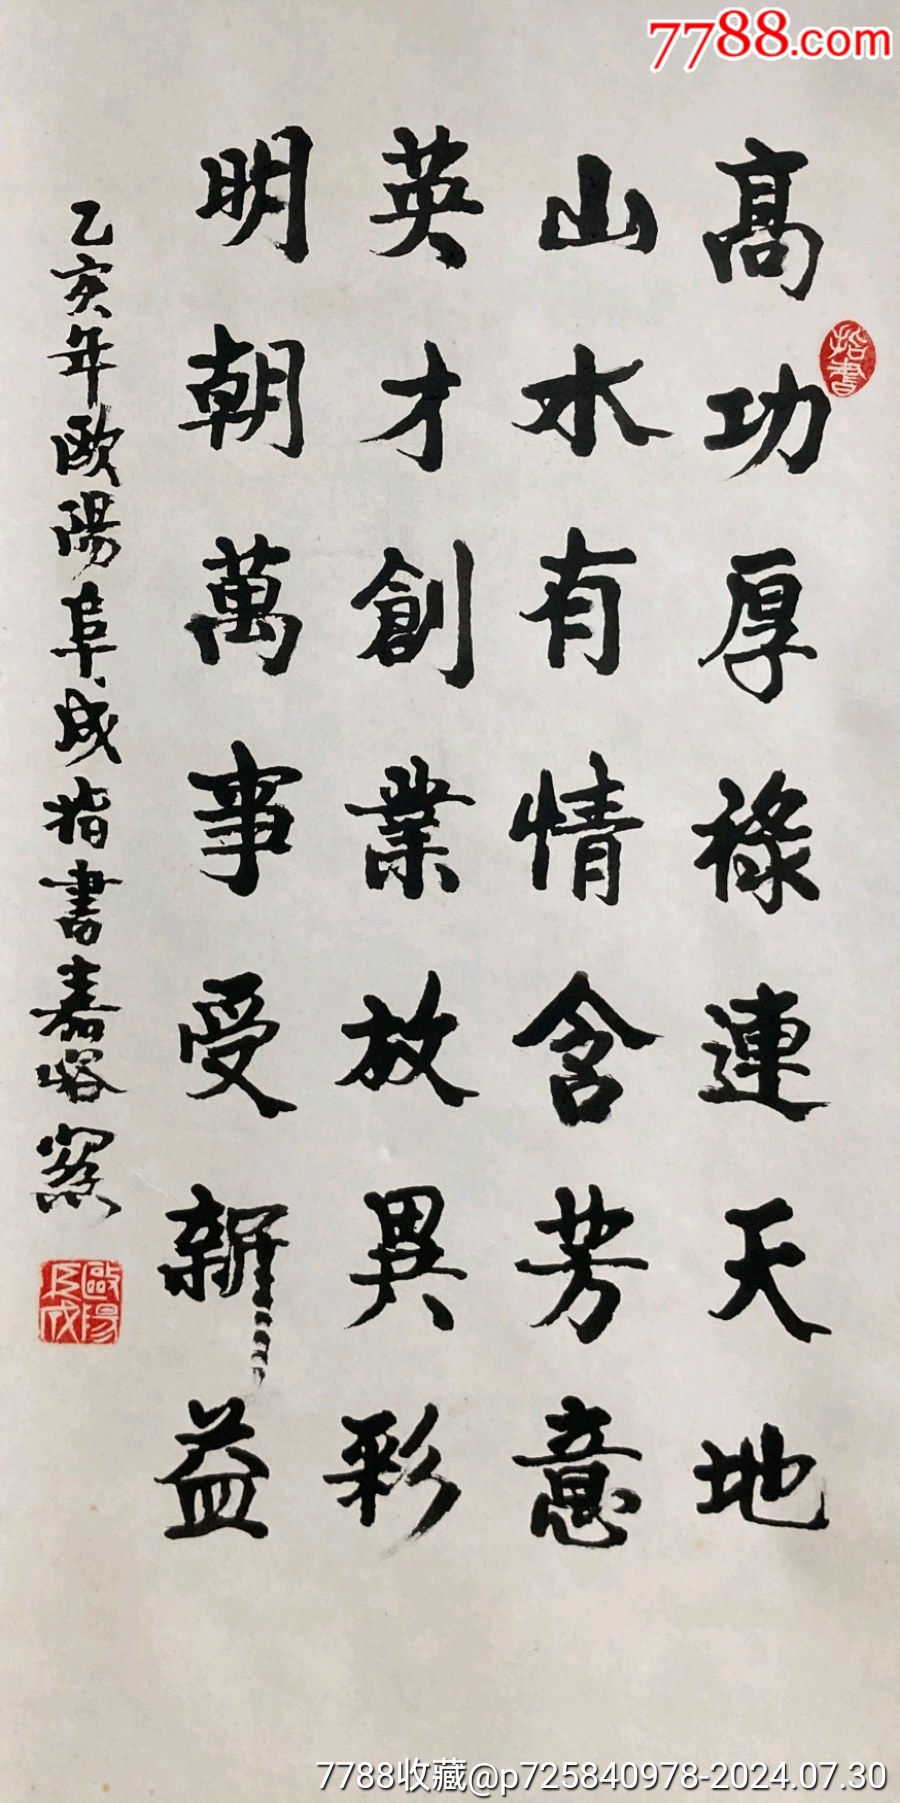 7788.com
高功厚祿連天地
指書
山水有情含芳意
英才創業放異彩
明朝萬事受新益
乙亥年歐陽阜成指書嘉峪窯
歐陽阜成
7788收藏@p725840978-2024.07.30